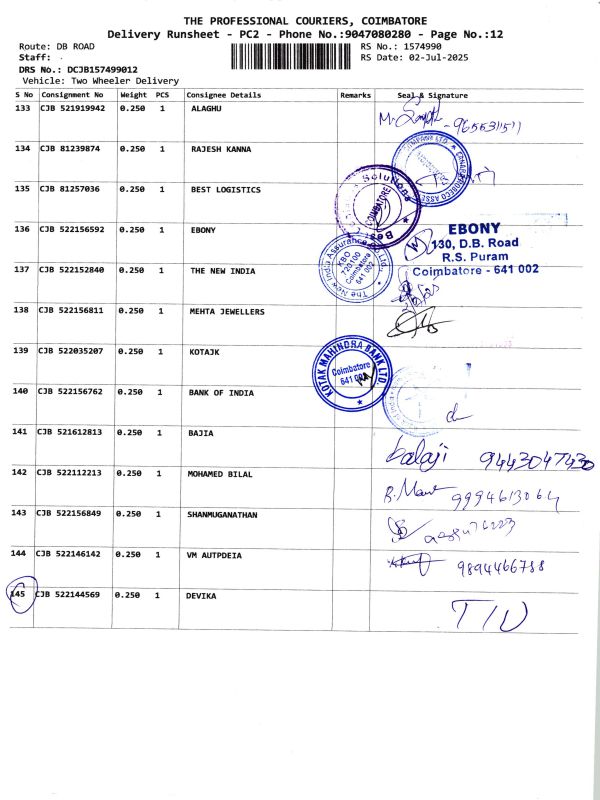 THE PROFESSIONAL COURIERS, COIMBATORE
Delivery Runsheet - PC2 - Phone No.:9047080280 - Page No.:12
Route: DB ROAD RS No.: 1574990
Staff: . RS Date: 02-Jul-2025
DRS No.: DCJB157499012
Vehicle: Two Wheeler Delivery
S No Consignment No Weight PCS Consignee Details Remarks Seal & Signature
133 CJB 521919942 0.250 1 ALAGHU
134 CJB 81239874 0.250 1 RAJESH KANNA
135 CJB 81257036 0.250 1 BEST LOGISTICS
Best Solutions
COIMBATORE
136 CJB 522156592 0.250 1 EBONY
EBONY
130, D.B. Road
R.S. Puram
Coimbatore - 641 002
137 CJB 522152840 0.250 1 THE NEW INDIA
The New India Assurance Co. Ltd.
KBO
720100
Coimbatore
641 002
138 CJB 522156811 0.250 1 MEHTA JEWELLERS
139 CJB 522035207 0.250 1 KOTAJK
KOTAK MAHINDRA BANK LTD
Coimbatore
641 002
140 CJB 522156762 0.250 1 BANK OF INDIA
141 CJB 521612813 0.250 1 BAJIA
balaji 9443047430
142 CJB 522112213 0.250 1 MOHAMED BILAL
9994613064
143 CJB 522156849 0.250 1 SHANMUGANATHAN
144 CJB 522146142 0.250 1 VM AUTPDEIA
9894466788
145 CJB 522144569 0.250 1 DEVIKA